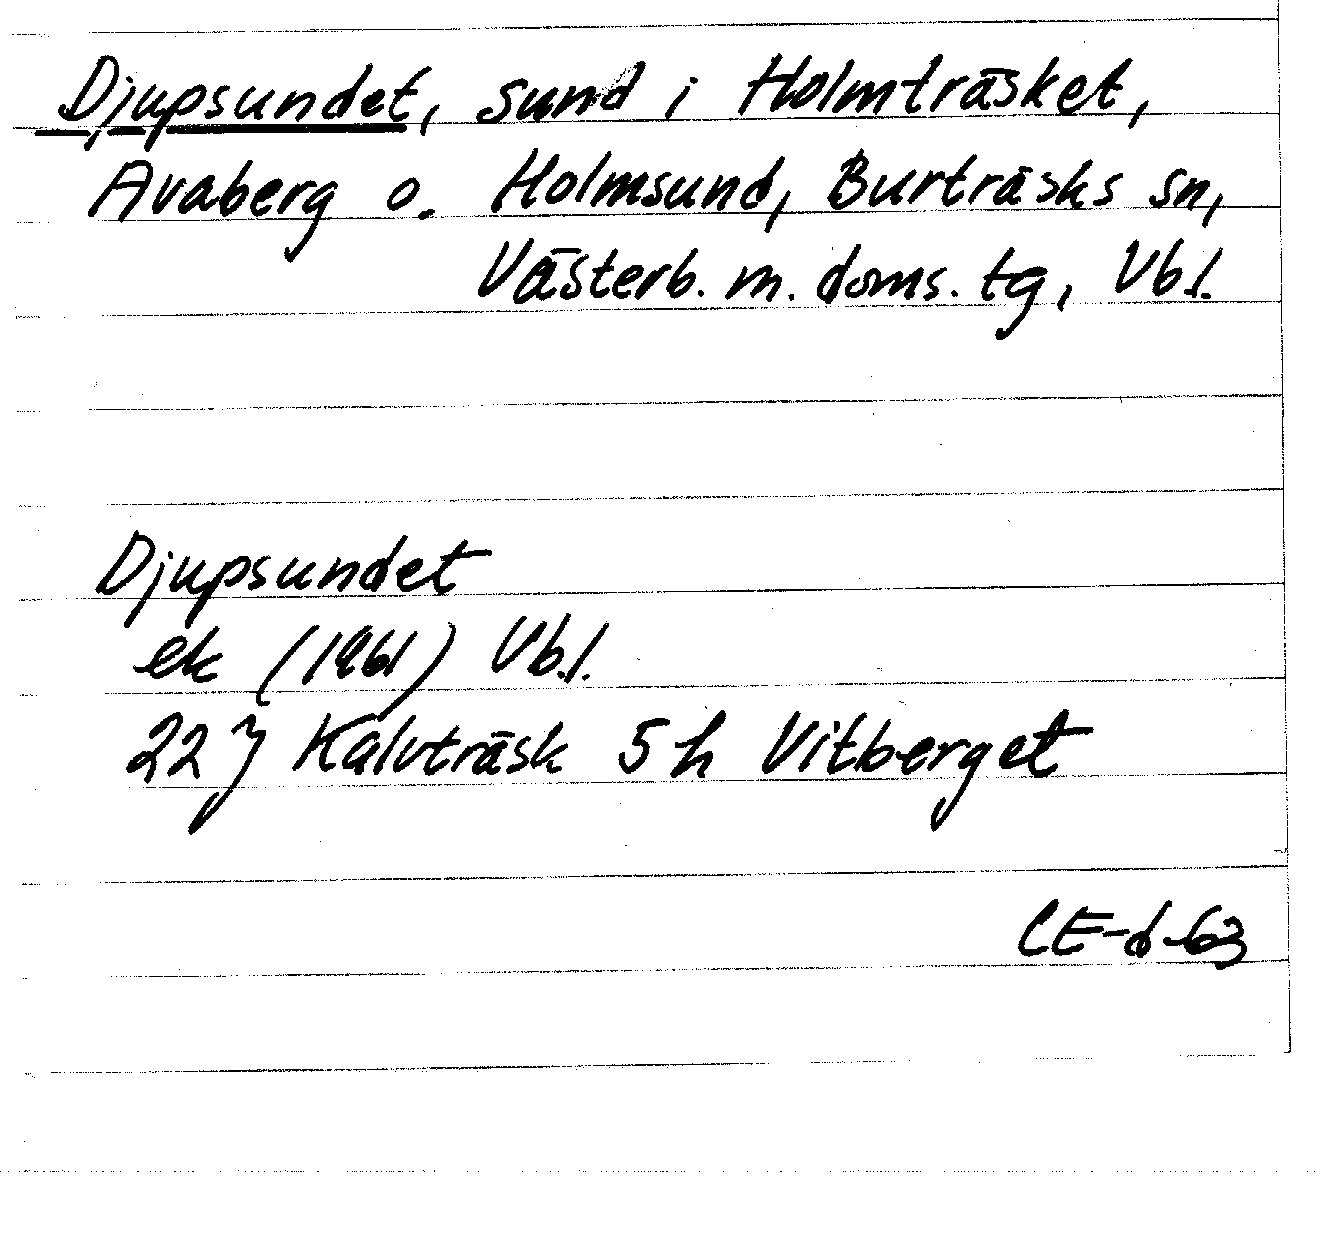 Djupsundet, sund i Holmträsket,
Avaberg o. Holmsund, Burträsks sn,
Västerb. m. doms. tg, Vb.l.
Djupsundet
ek (1961) Vb.l.
22 J Kalvträsk 5 h Vitberget
CE-d-63